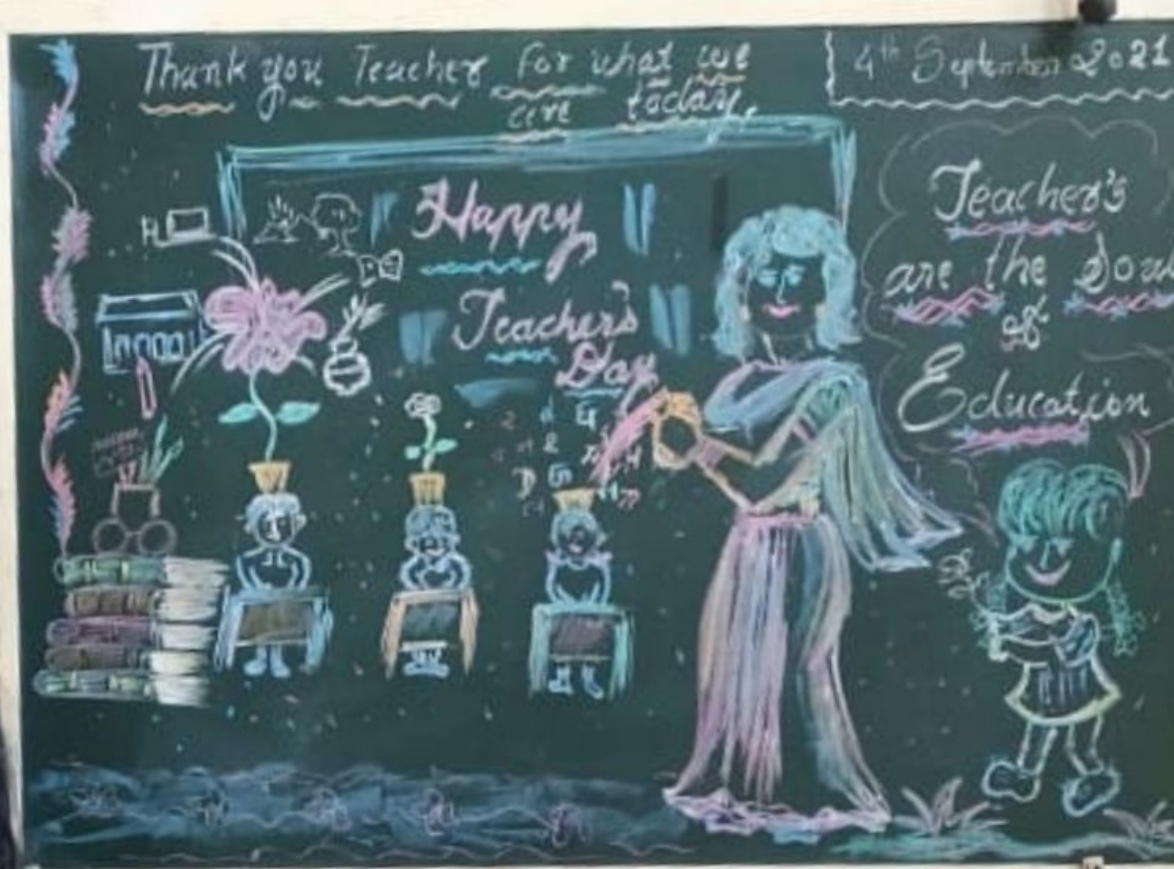 Thank you Teacher for what we
are today.
4th September 2021
Happy
Teacher's
Day
Teacher's
are the Soul
of
Education